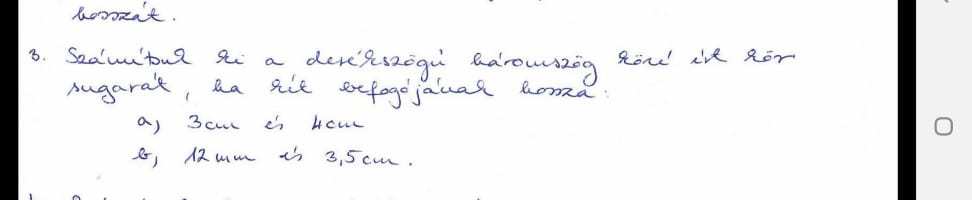 hosszát.
3. Számítsuk ki a derékszögű háromszög köré írt kör
sugarát, ha két befogójának hossza:
a, 3cm és 4cm
b, 12mm és 3,5cm.